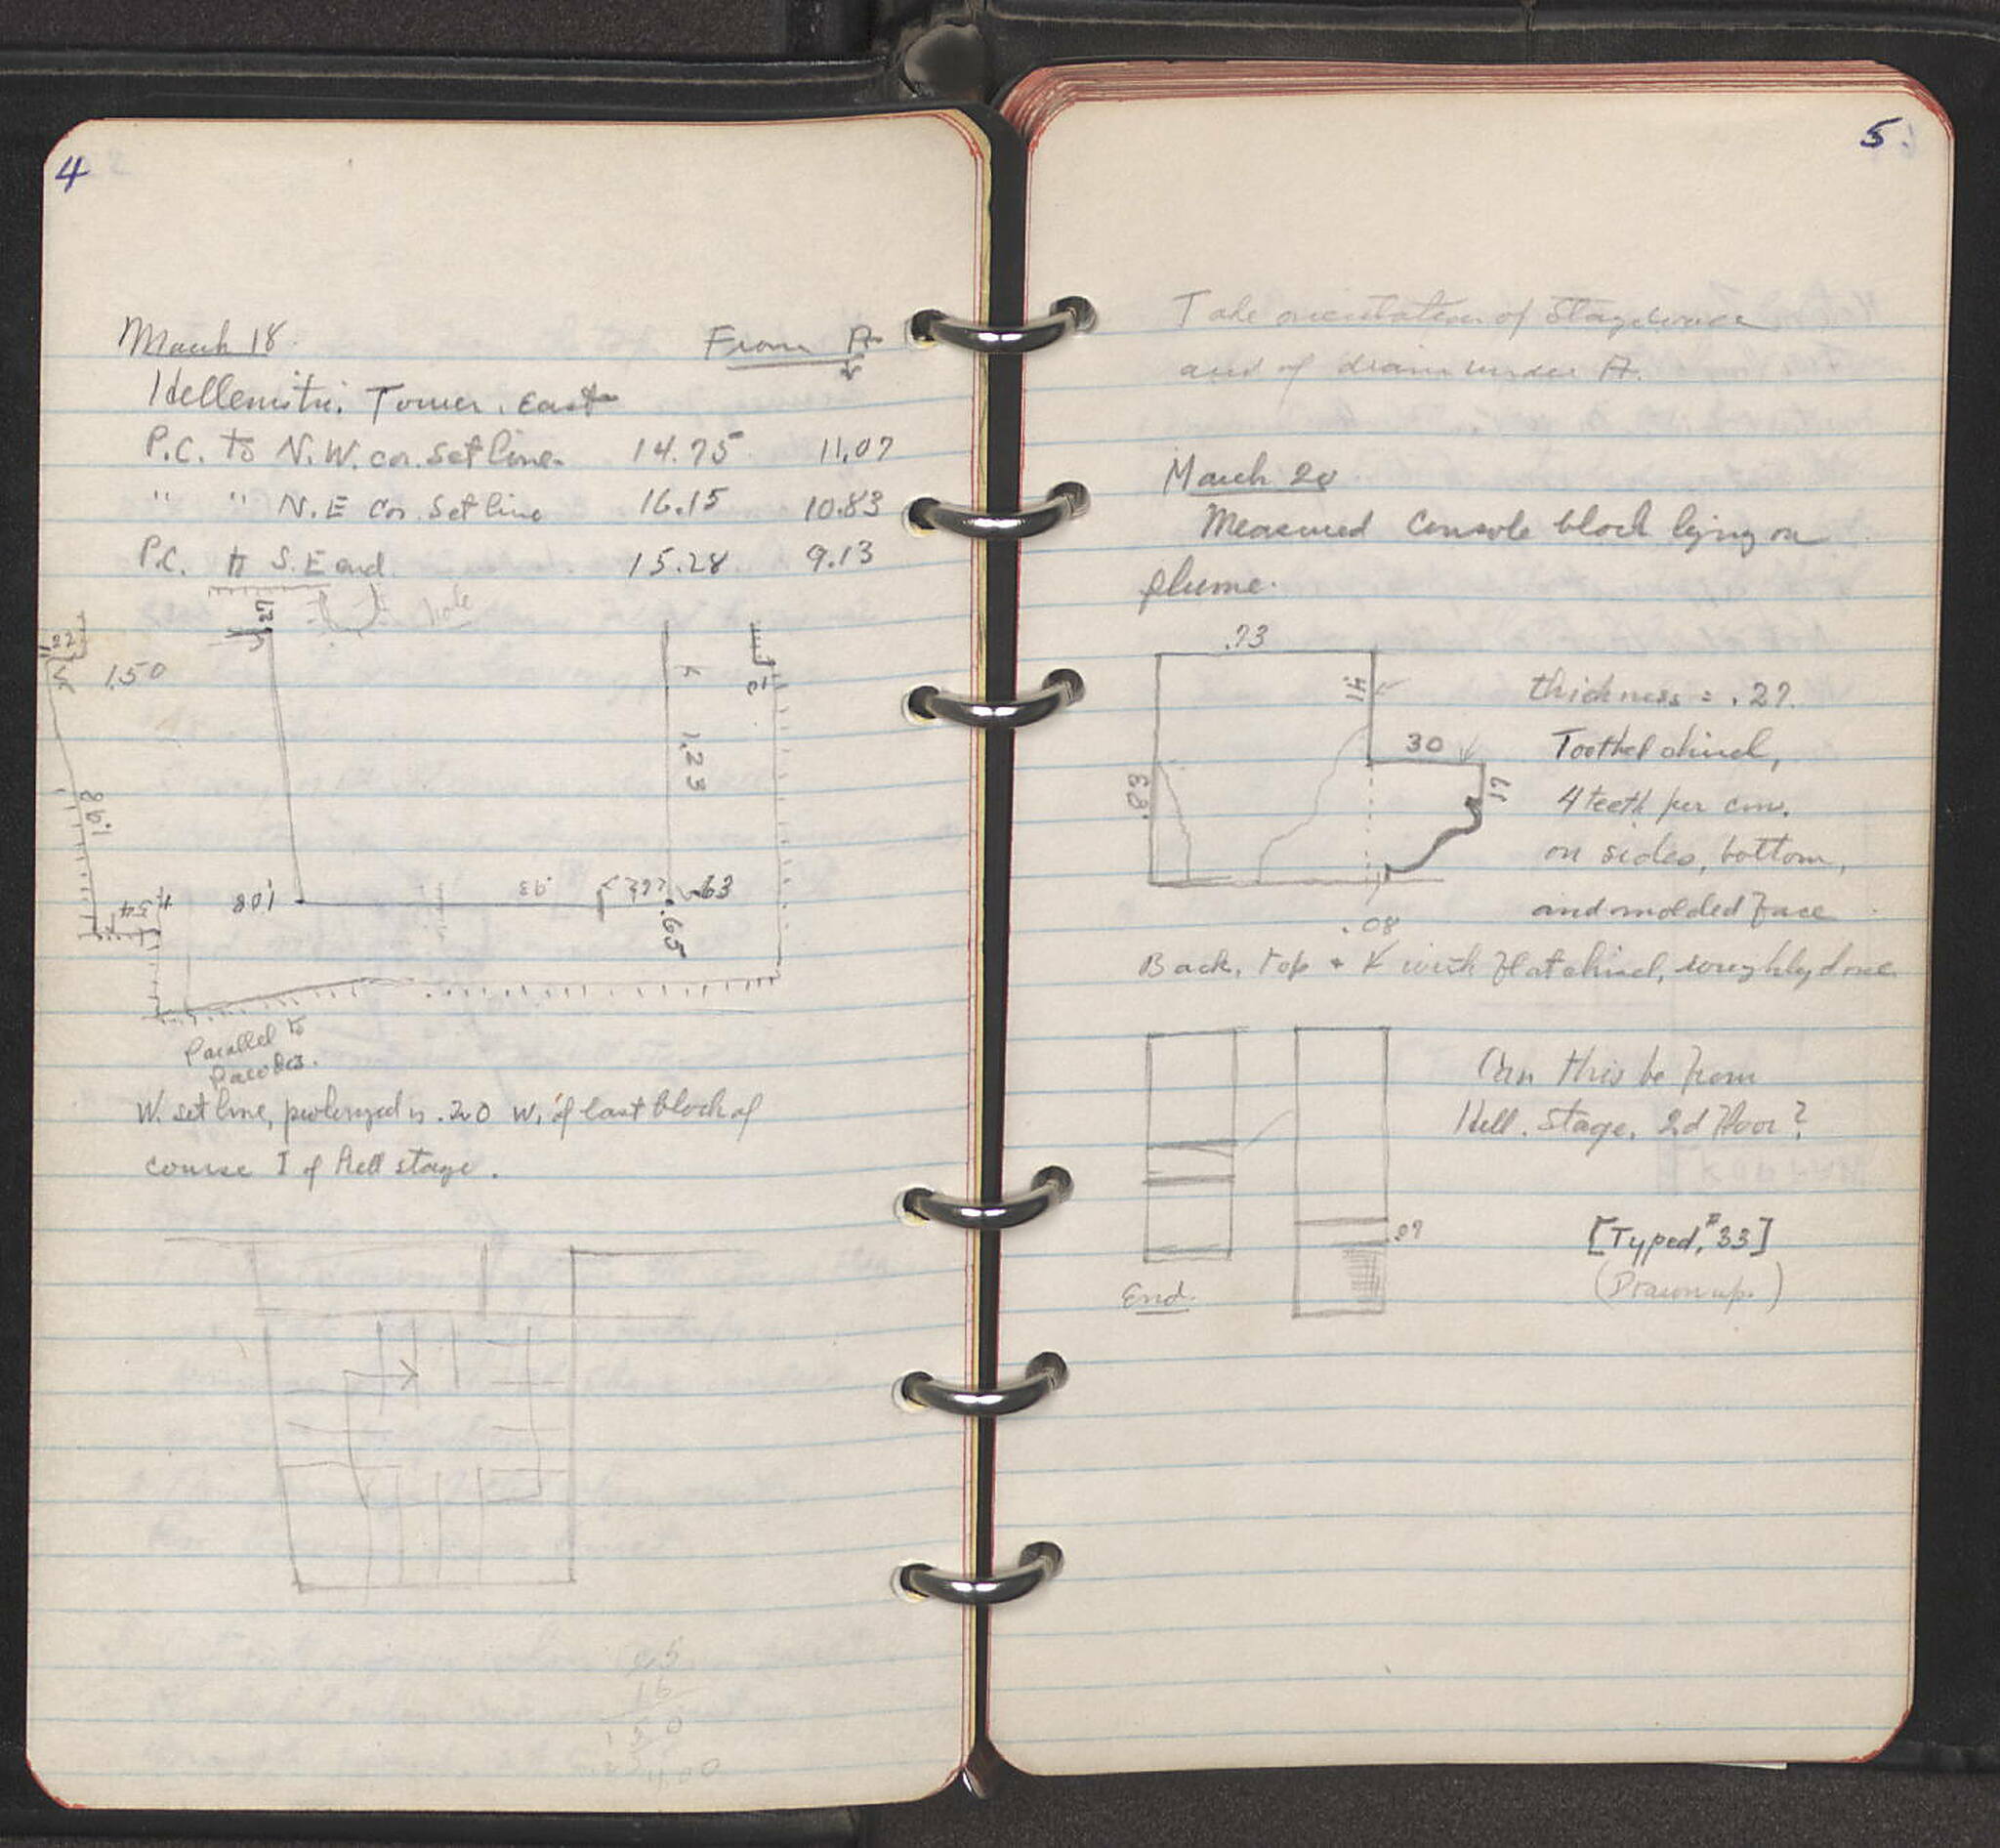 4
March 18
From A
Hellenistic Tower, East
P.C. to N.W. cor. set line 14.75 11.07
" " N.E cor. set line 16.15 10.83
P.C. to S.E end 15.28 9.13
hole
.22
1.50
1.23
1.98
.54
1.08
.93
.63
.65
Parallel to
Parodos.
W. set line, prolonged is .20 W. of last block of
course I of Hell stage.
5
Take orientation of Stage
and of drain under A.
March 20
Measured Console block lying on
plume.
.73
.41
thickness = .29.
30
Toothed chisel,
.83
.17
4 teeth per cm.
on sides, bottom,
and molded face
.08
Back, top + with flat chisel, roughly done
Can this be from
Hell. Stage, 2d floor?
.09
[Typed, #33]
End.
(Drawn up.)